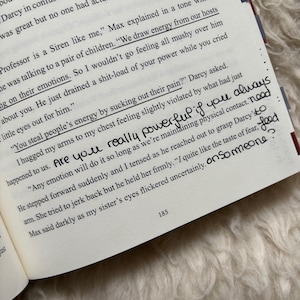 Darcy in con
was great but no one had ac
"Professor is a Siren like me," Max explained in a tone
he was talking to a pair of children. "We draw energy from our hosts
on their emotions. So I wouldn't go feeling all mushy over him
about you. He just drained a shit-load of your power while you cried
little eyes out for him."
"You steal people's energy by sucking out their pain?" Darcy asked.
I hugged my arms to my chest feeling slightly violated by what had just
happened to us. Are you really powerful if you always need to feed on someone?
"Any emotion will do it so long as we're maintaining physical contact."
He stepped forward suddenly and I tensed as he reached out to grasp Darcy
am. She tried to jerk back but he held her firmly. "I quite like the taste of fear,"
Max said darkly as my sister's eyes flickered uncertainly
185